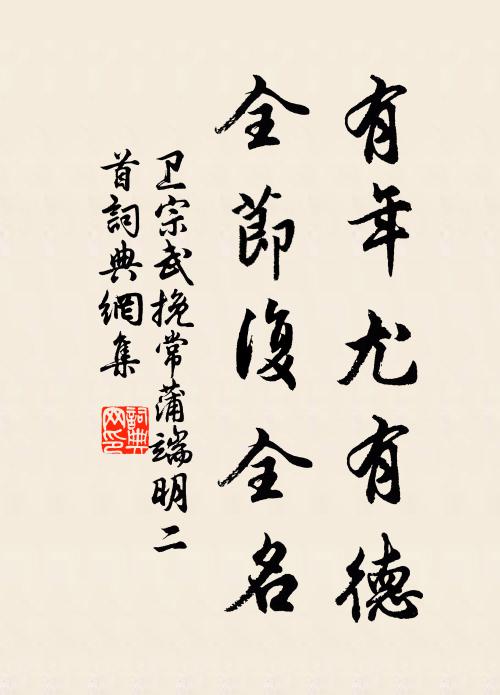 有年尤有德
全節復全名
卫宗武挽常蒲端明二
首詞典網集
詞典网印